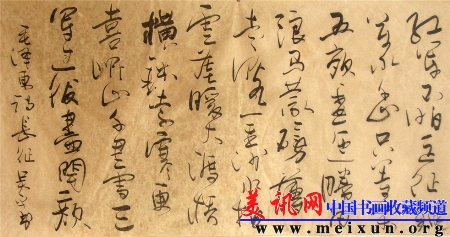 红军不怕远征难
万水千山只等闲
五岭逶迤腾细
浪乌蒙磅礴
走泥丸金沙水拍
云崖暖大渡桥
横铁索寒更
喜岷山千里雪三
军过后尽开颜
毛泽东诗长征 吴
美讯网 中国书画收藏频道
www.meixun.org